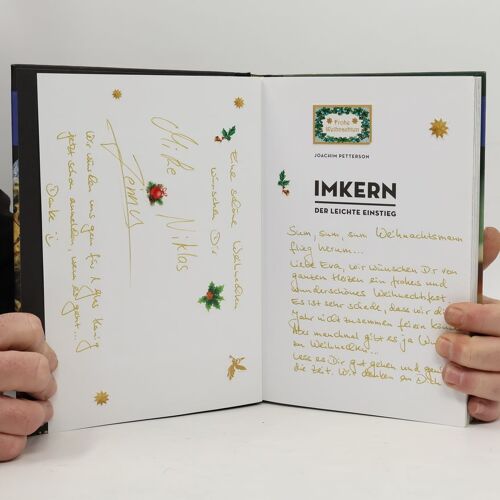 Eine schöne Weihnachten
wünschen Dir
Mike Niklos
Wir würden uns gern für 1 Glas Honig
jetzt schon anmelden, wenn es geht...
Danke :)
Frohe
Weihnachten
JOACHIM PETTERSON
IMKERN
DER LEICHTE EINSTIEG
Sum, sum, sum Weihnachtsmann
flieg herum...
Liebe Eva, wir wünschen Dir von
ganzen Herzen ein frohes und
wunderschönes Weihnachtsfest.
Es ist sehr schade, dass wir
Jahr nicht zusammen feiern
Aber manchmal gibt es ja
an Weihnachten...
Lass es Dir gut gehen und
die Zeit. Wir denken an Dich